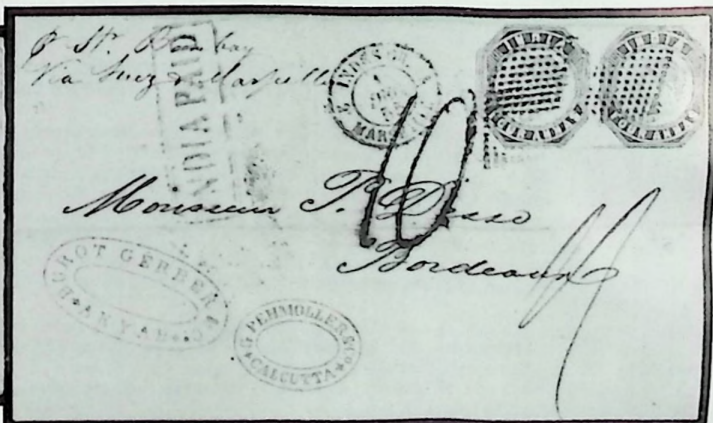 p Str. Bombay
Via Suez & Marseille
INDIA PAID
INDES OR.
MARSEILLE
10
Monsieur P.
Bordeaux
GROT GERBER & Co
AKYAB
G PEHMOLLER & Co
CALCUTTA